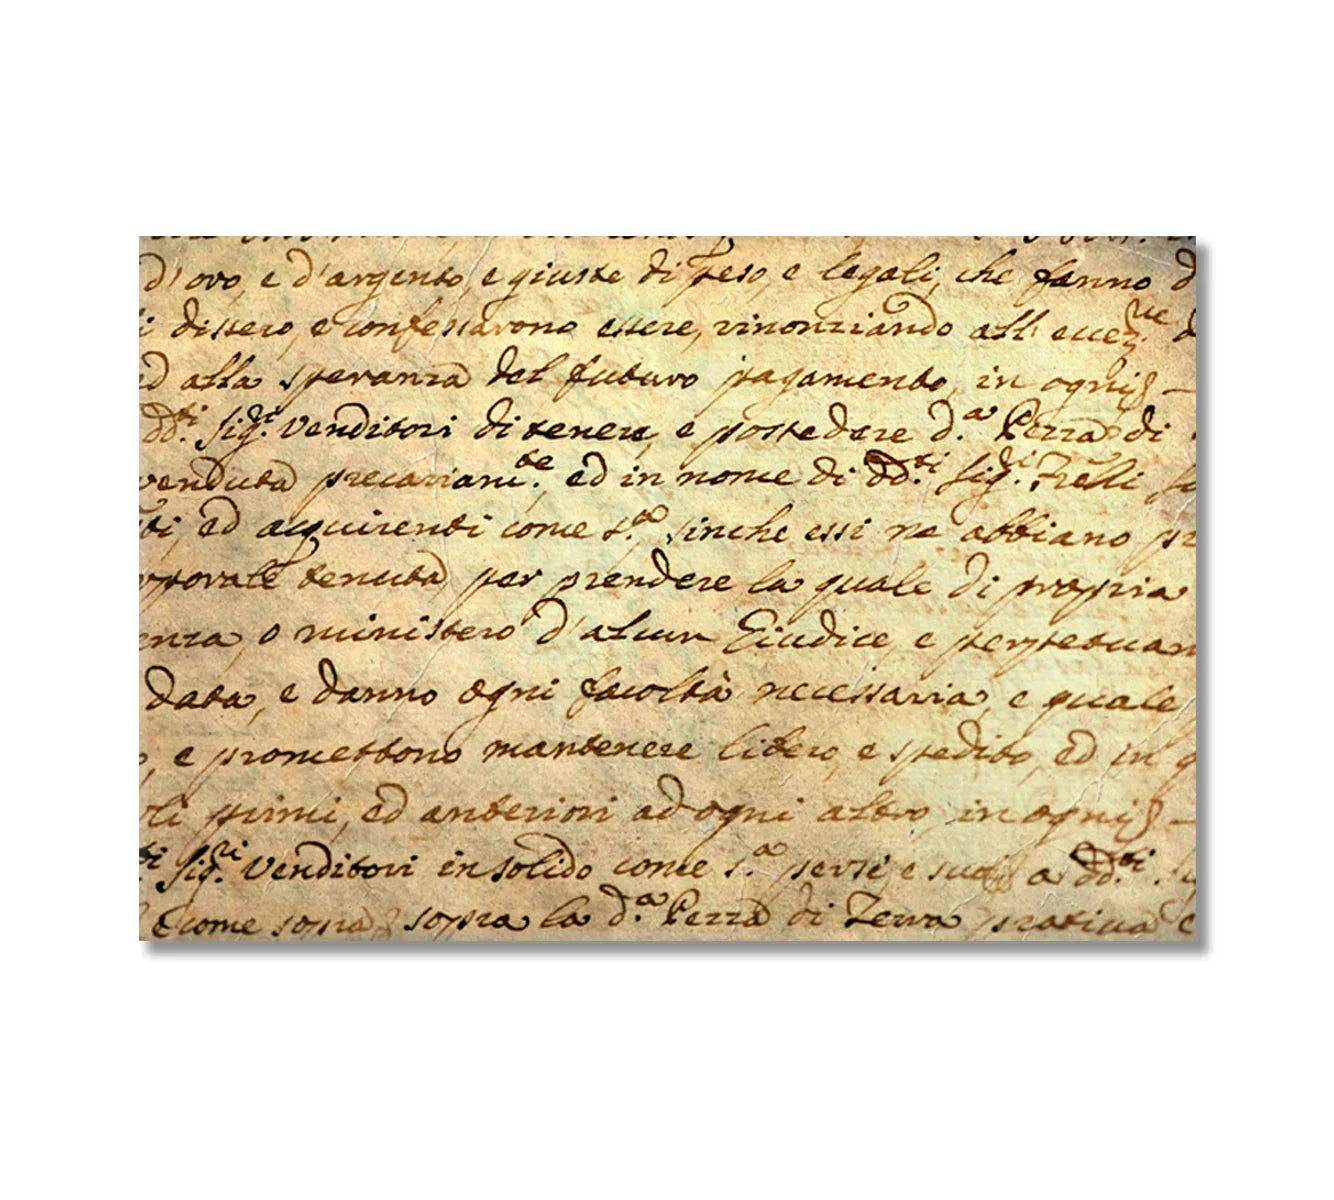 d'oro, e d'argento, e giuste di peso, e legali, che fanno
dissero, e confessarono essere, rinonziando all' eccez.ne
ed alla speranza del futuro pagamento, in ogni
dd.ti Sig.ri Venditori di tenere, e possedere d.a Pezza di
venduta precariam.te ed in nome di dd.ti Sig.ri Frelli
ti, ed acquirenti come s.a, sinche essi ne abbiano
tenuta per prendere la quale di propria
enza, o ministero d'alcun Giudice, e perpetuam
data, e danno ogni facoltà necessaria, e quale
e promettono mantenere libero, e spedito, ed in
li primi, ed anteriori ad ogni altro, in ogni
ti Sig.ri Venditori in solido come s.a per se, e suoi a dd.ti
e come sopra sopra la d.a Pezza di Terra prativa